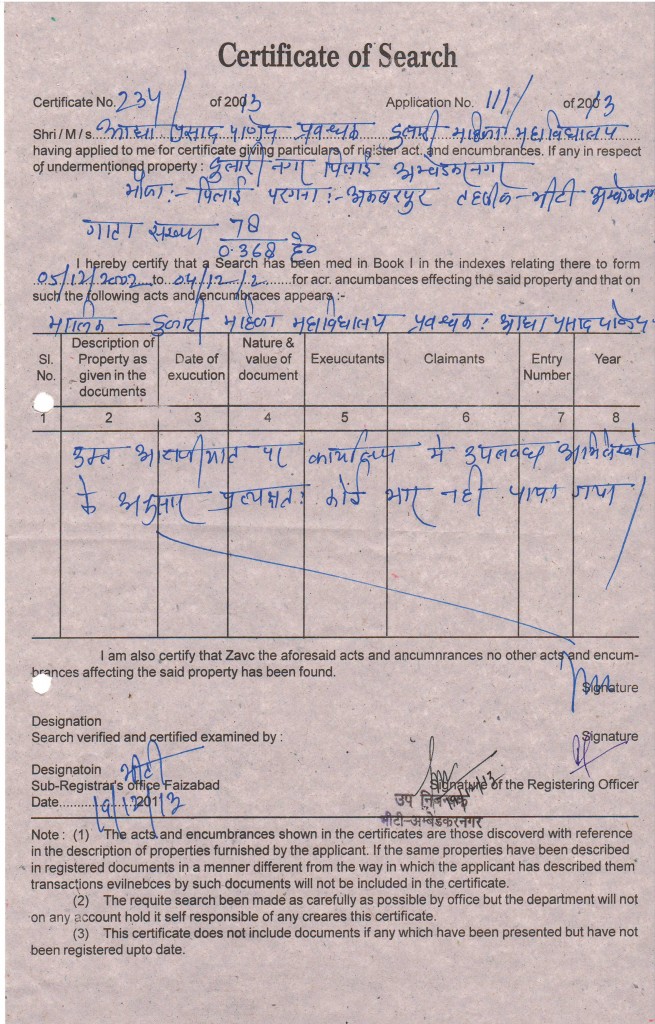 Certificate of Search
Certificate No. 234/ of 2013 Application No. 111/ of 2013
Shri / M/s. आद्या प्रसाद पाण्डेय प्रबन्धक दुलारी महिला महाविद्यालय
having applied to me for certificate giving particulars of rigister act, and encumbrances. If any in respect
of undermentioned property : दुलारी नगर पिलाई अम्बेडकरनगर
मौजा :- पिलाई परगना :- अकबरपुर तहसील - भीटी अम्बेडकरनगर
गाटा संख्या 78
0.368 हे०
I hereby certify that a Search has been med in Book I in the indexes relating there to form
05/12/2002 to 04/12/12 for acr. ancumbances effecting the said property and that on
such the following acts and encumbraces appears :-
मालिक — दुलारी महिला महाविद्यालय प्रबन्धक : आद्या प्रसाद पाण्डेय
Sl. No. Description of Property as given in the documents Date of exucution Nature & value of document Exeucutants Claimants Entry Number Year
1 2 3 4 5 6 7 8
उक्त आराजीयात पर कार्यालय मे उपलब्ध अभिलेखो
के अनुसार प्रत्यक्षतः कोई भार नही पाया गया
I am also certify that Zavc the aforesaid acts and ancumnrances no other acts and encum-
brances affecting the said property has been found.
Signature
Designation
Search verified and certified examined by : Signature
Designatoin भीटी
Sub-Registrar's office Faizabad Signature of the Registering Officer
Date 19/12/2013
उप निबन्धक
भीटी-अम्बेडकरनगर
Note : (1) The acts and encumbrances shown in the certificates are those discoverd with reference
in the description of properties furnished by the applicant. If the same properties have been described
in registered documents in a menner different from the way in which the applicant has described them
transactions evilnebces by such documents will not be included in the certificate.
(2) The requite search been made as carefully as possible by office but the department will not
on any account hold it self responsible of any creares this certificate.
(3) This certificate does not include documents if any which have been presented but have not
been registered upto date.